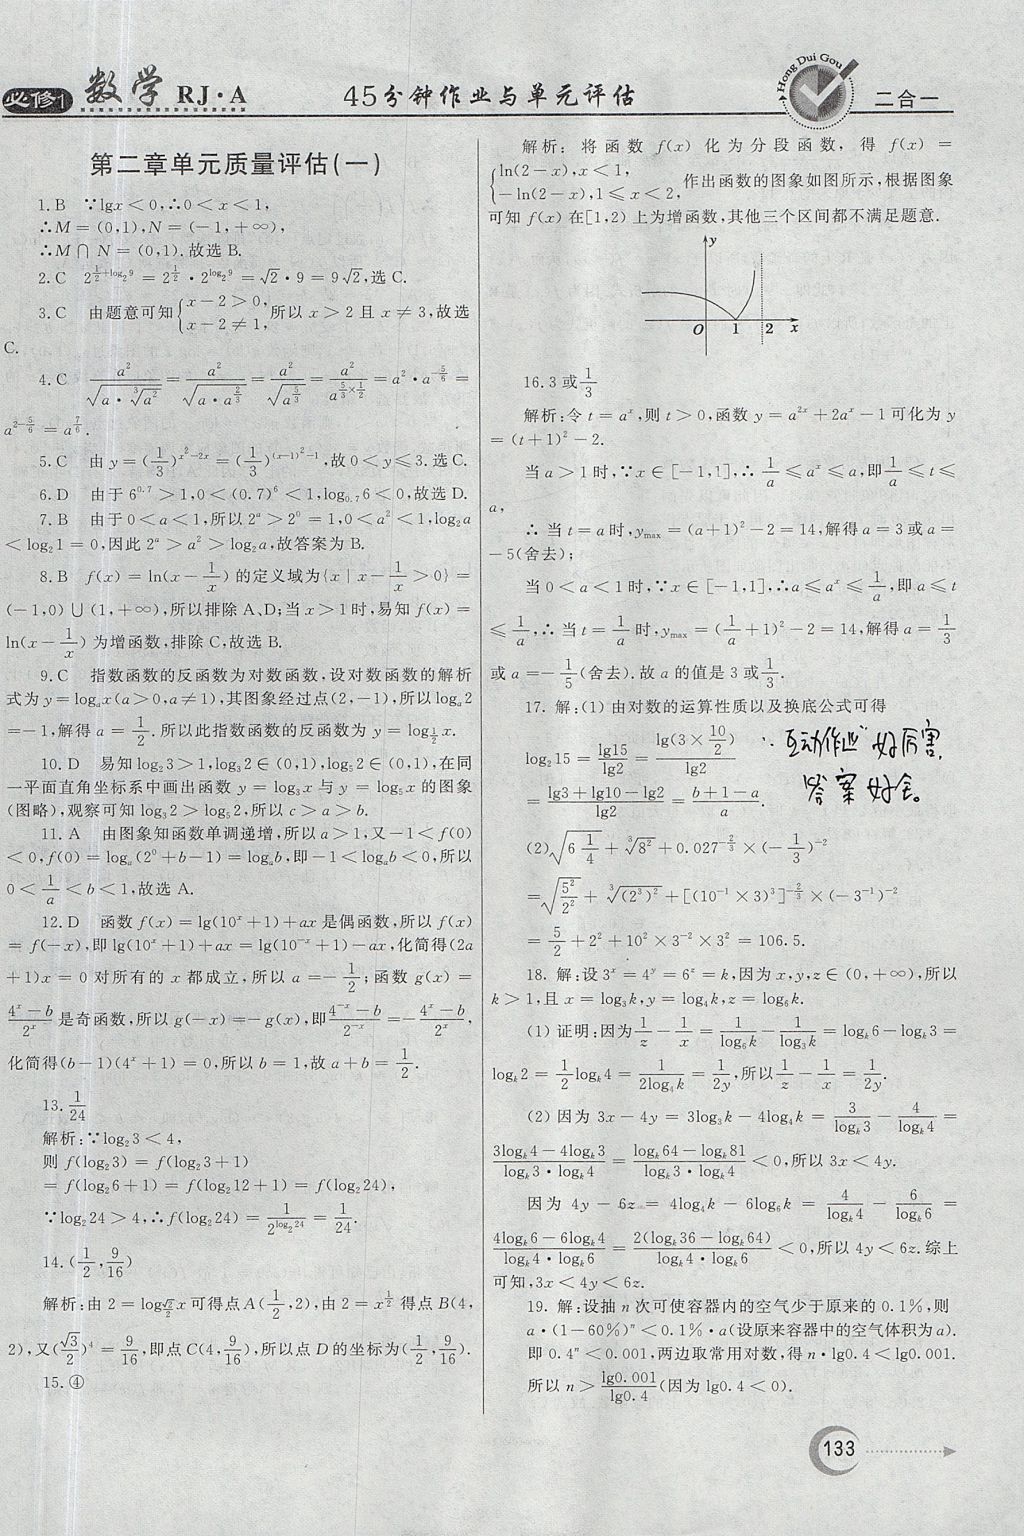 必修1 数学 RJ·A 45分钟作业与单元评估 Hong Dui Gou 二合一
第二章单元质量评估(一)
1.B ∵lgx<0,∴0<x<1,
∴M=(0,1),N=(-1,+∞),
∴M∩N=(0,1).故选B.
2.C 2^{1/2+log₂9}=2^{1/2}·2^{log₂9}=√2·9=9√2,选C.
3.C 由题意可知{x-2>0, x-2≠1,所以x>2且x≠3,故选
C.
4.C a²/√(a·∛(a²))=a²/√(a·a^{2/3})=a²/√(a^{5/3})=a²/a^{5/3×1/2}=a²·a^{-5/6}=
a^{2-5/6}=a^{7/6}.
5.C 由y=(1/3)^{x²-2x}=(1/3)^{(x-1)²-1},故0<y≤3.选C.
6.D 由于6^{0.7}>1,0<(0.7)⁶<1,log_{0.7}6<0,故选D.
7.B 由于0<a<1,所以2^a>2⁰=1,0<a²<1,log₂a
<log₂1=0,因此2^a>a²>log₂a,故答案为B.
8.B f(x)=ln(x-1/x)的定义域为{x|x-1/x>0}=
(-1,0)∪(1,+∞),所以排除A、D;当x>1时,易知f(x)=
ln(x-1/x)为增函数,排除C,故选B.
9.C 指数函数的反函数为对数函数,设对数函数的解析
式为y=log_a x(a>0,a≠1),其图象经过点(2,-1),所以log_a2
=-1,解得a=1/2.所以此指数函数的反函数为y=log_{1/2}x.
10.D 易知log₂3>1,log₃2∈(0,1),log₅2∈(0,1),在同
一平面直角坐标系中画出函数y=log₃x与y=log₅x的图象
(图略),观察可知log₃2>log₅2,所以c>a>b.
11.A 由图象知函数单调递增,所以a>1,又-1<f(0)
<0,f(0)=log_a(2⁰+b-1)=log_a b,即-1<log_a b<0,所以
0<1/a<b<1,故选A.
12.D 函数f(x)=lg(10^x+1)+ax是偶函数,所以f(x)
=f(-x),即lg(10^x+1)+ax=lg(10^{-x}+1)-ax,化简得(2a
+1)x=0对所有的x都成立,所以a=-1/2;函数g(x)=
(4^x-b)/2^x是奇函数,所以g(-x)=-g(x),即(4^{-x}-b)/2^{-x}=-(4^x-b)/2^x,
化简得(b-1)(4^x+1)=0,所以b=1,故a+b=1/2.
13.1/24
解析:∵log₂3<4,
则f(log₂3)=f(log₂3+1)
=f(log₂6+1)=f(log₂12+1)=f(log₂24),
∵log₂24>4,∴f(log₂24)=1/2^{log₂24}=1/24.
14.(1/2,9/16)
解析:由2=log_{√2/2}x可得点A(1/2,2),由2=x^{1/2}得点B(4,
2),又(√3/2)⁴=9/16,即点C(4,9/16),所以点D的坐标为(1/2,9/16).
15.④
解析:将函数f(x)化为分段函数,得f(x)=
{ln(2-x),x<1, -ln(2-x),1≤x<2,作出函数的图象如图所示,根据图象
可知f(x)在[1,2)上为增函数,其他三个区间都不满足题意.
y
O 1 2 x
16.3或1/3
解析:令t=a^x,则t>0,函数y=a^{2x}+2a^x-1可化为y
=(t+1)²-2.
当a>1时,∵x∈[-1,1],∴1/a≤a^x≤a,即1/a≤t≤
a,
∴当t=a时,y_max=(a+1)²-2=14,解得a=3或a=
-5(舍去);
当0<a<1时,∵x∈[-1,1],∴a≤a^x≤1/a,即a≤t
≤1/a,∴当t=1/a时,y_max=(1/a+1)²-2=14,解得a=1/3
或a=-1/5(舍去).故a的值是3或1/3.
17.解:(1)由对数的运算性质以及换底公式可得
log₂15=lg15/lg2=lg(3×10/2)/lg2
=(lg3+lg10-lg2)/lg2=(b+1-a)/a.
互动作业"好厉害,
答案好全。
(2)√(6 1/4)+∛(8²)+0.027^{-2/3}×(-1/3)^{-2}
=√(5²/2²)+∛((2³)²)+[(10^{-1}×3)³]^{-2/3}×(-3^{-1})^{-2}
=5/2+2²+10²×3^{-2}×3²=106.5.
18.解:设3^x=4^y=6^z=k,因为x,y,z∈(0,+∞),所以
k>1,且x=log₃k,y=log₄k,z=log₆k.
(1)证明:因为1/z-1/x=1/log₆k-1/log₃k=log_k6-log_k3=
log_k2=1/2log_k4=1/(2log₄k)=1/2y,所以1/z-1/x=1/2y.
(2)因为3x-4y=3log₃k-4log₄k=3/log_k3-4/log_k4=
(3log_k4-4log_k3)/(log_k3·log_k4)=(log_k64-log_k81)/(log_k3·log_k4)<0,所以3x<4y.
因为4y-6z=4log₄k-6log₆k=4/log_k4-6/log_k6=
(4log_k6-6log_k4)/(log_k4·log_k6)=2(log_k36-log_k64)/(log_k4·log_k6)<0,所以4y<6z.综上
可知,3x<4y<6z.
19.解:设抽n次可使容器内的空气少于原来的0.1%,则
a·(1-60%)^n<0.1%·a(设原来容器中的空气体积为a).
即0.4^n<0.001,两边取常用对数,得n·lg0.4<lg0.001.
所以n>lg0.001/lg0.4(因为lg0.4<0).
133